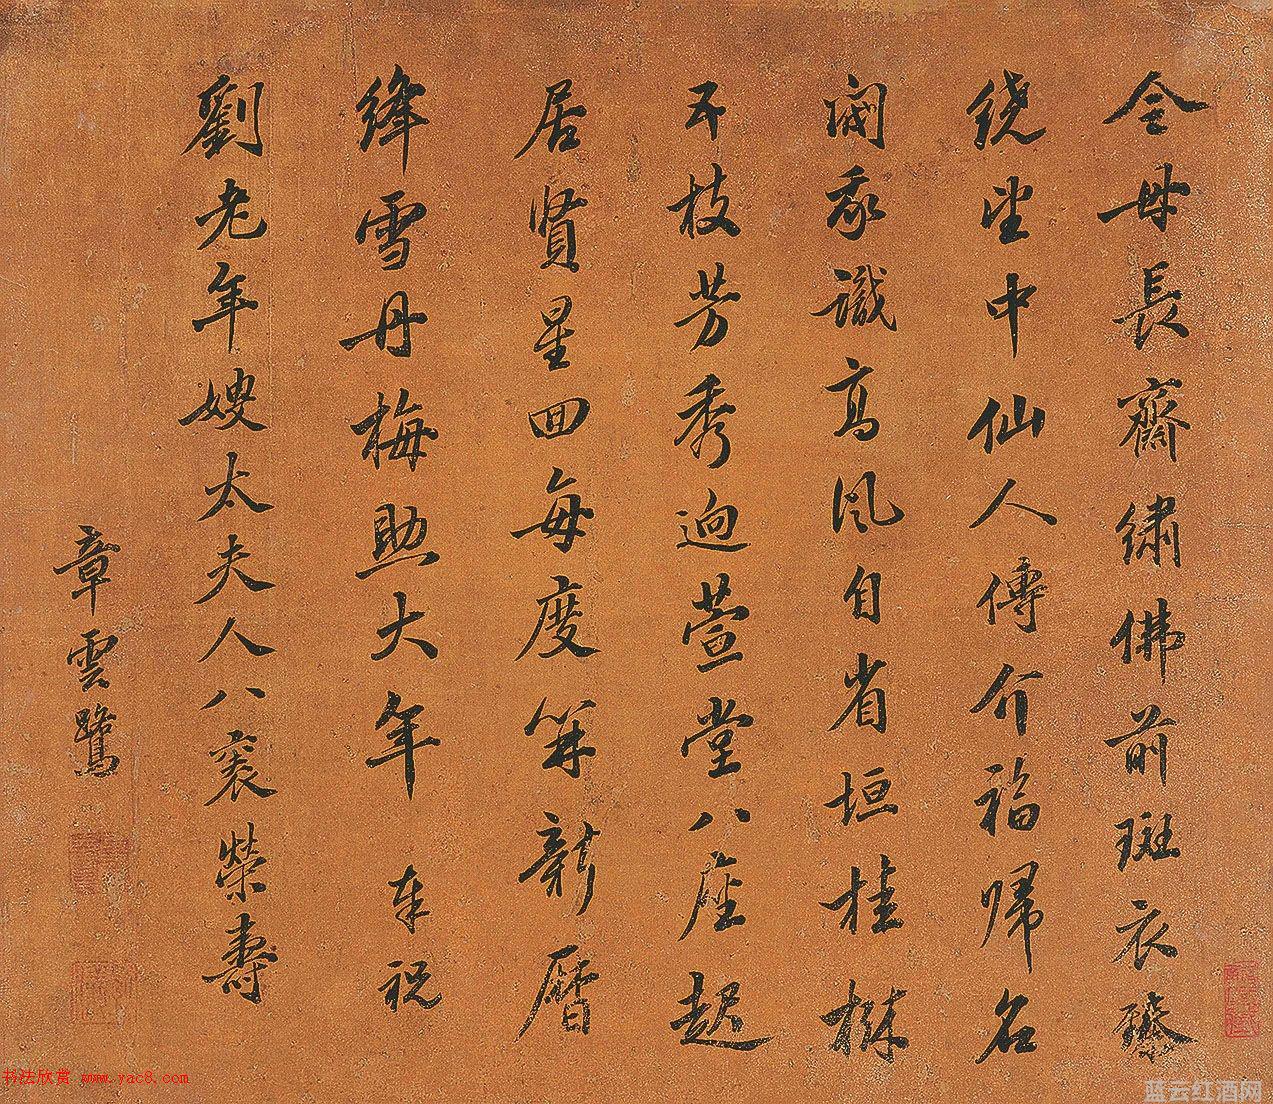 金母長齋繡佛前斑衣璨
繞坐中仙人傳介福歸名
閥永識高風自省垣桂楙
五枝芳秀迥萱堂八座起
居賢星回每度算新曆
絳雪丹梅助大年 奉祝
劉老年嫂太夫人八袠榮壽
章雲鷺
书法欣赏 www.yac8.com
蓝云红酒网